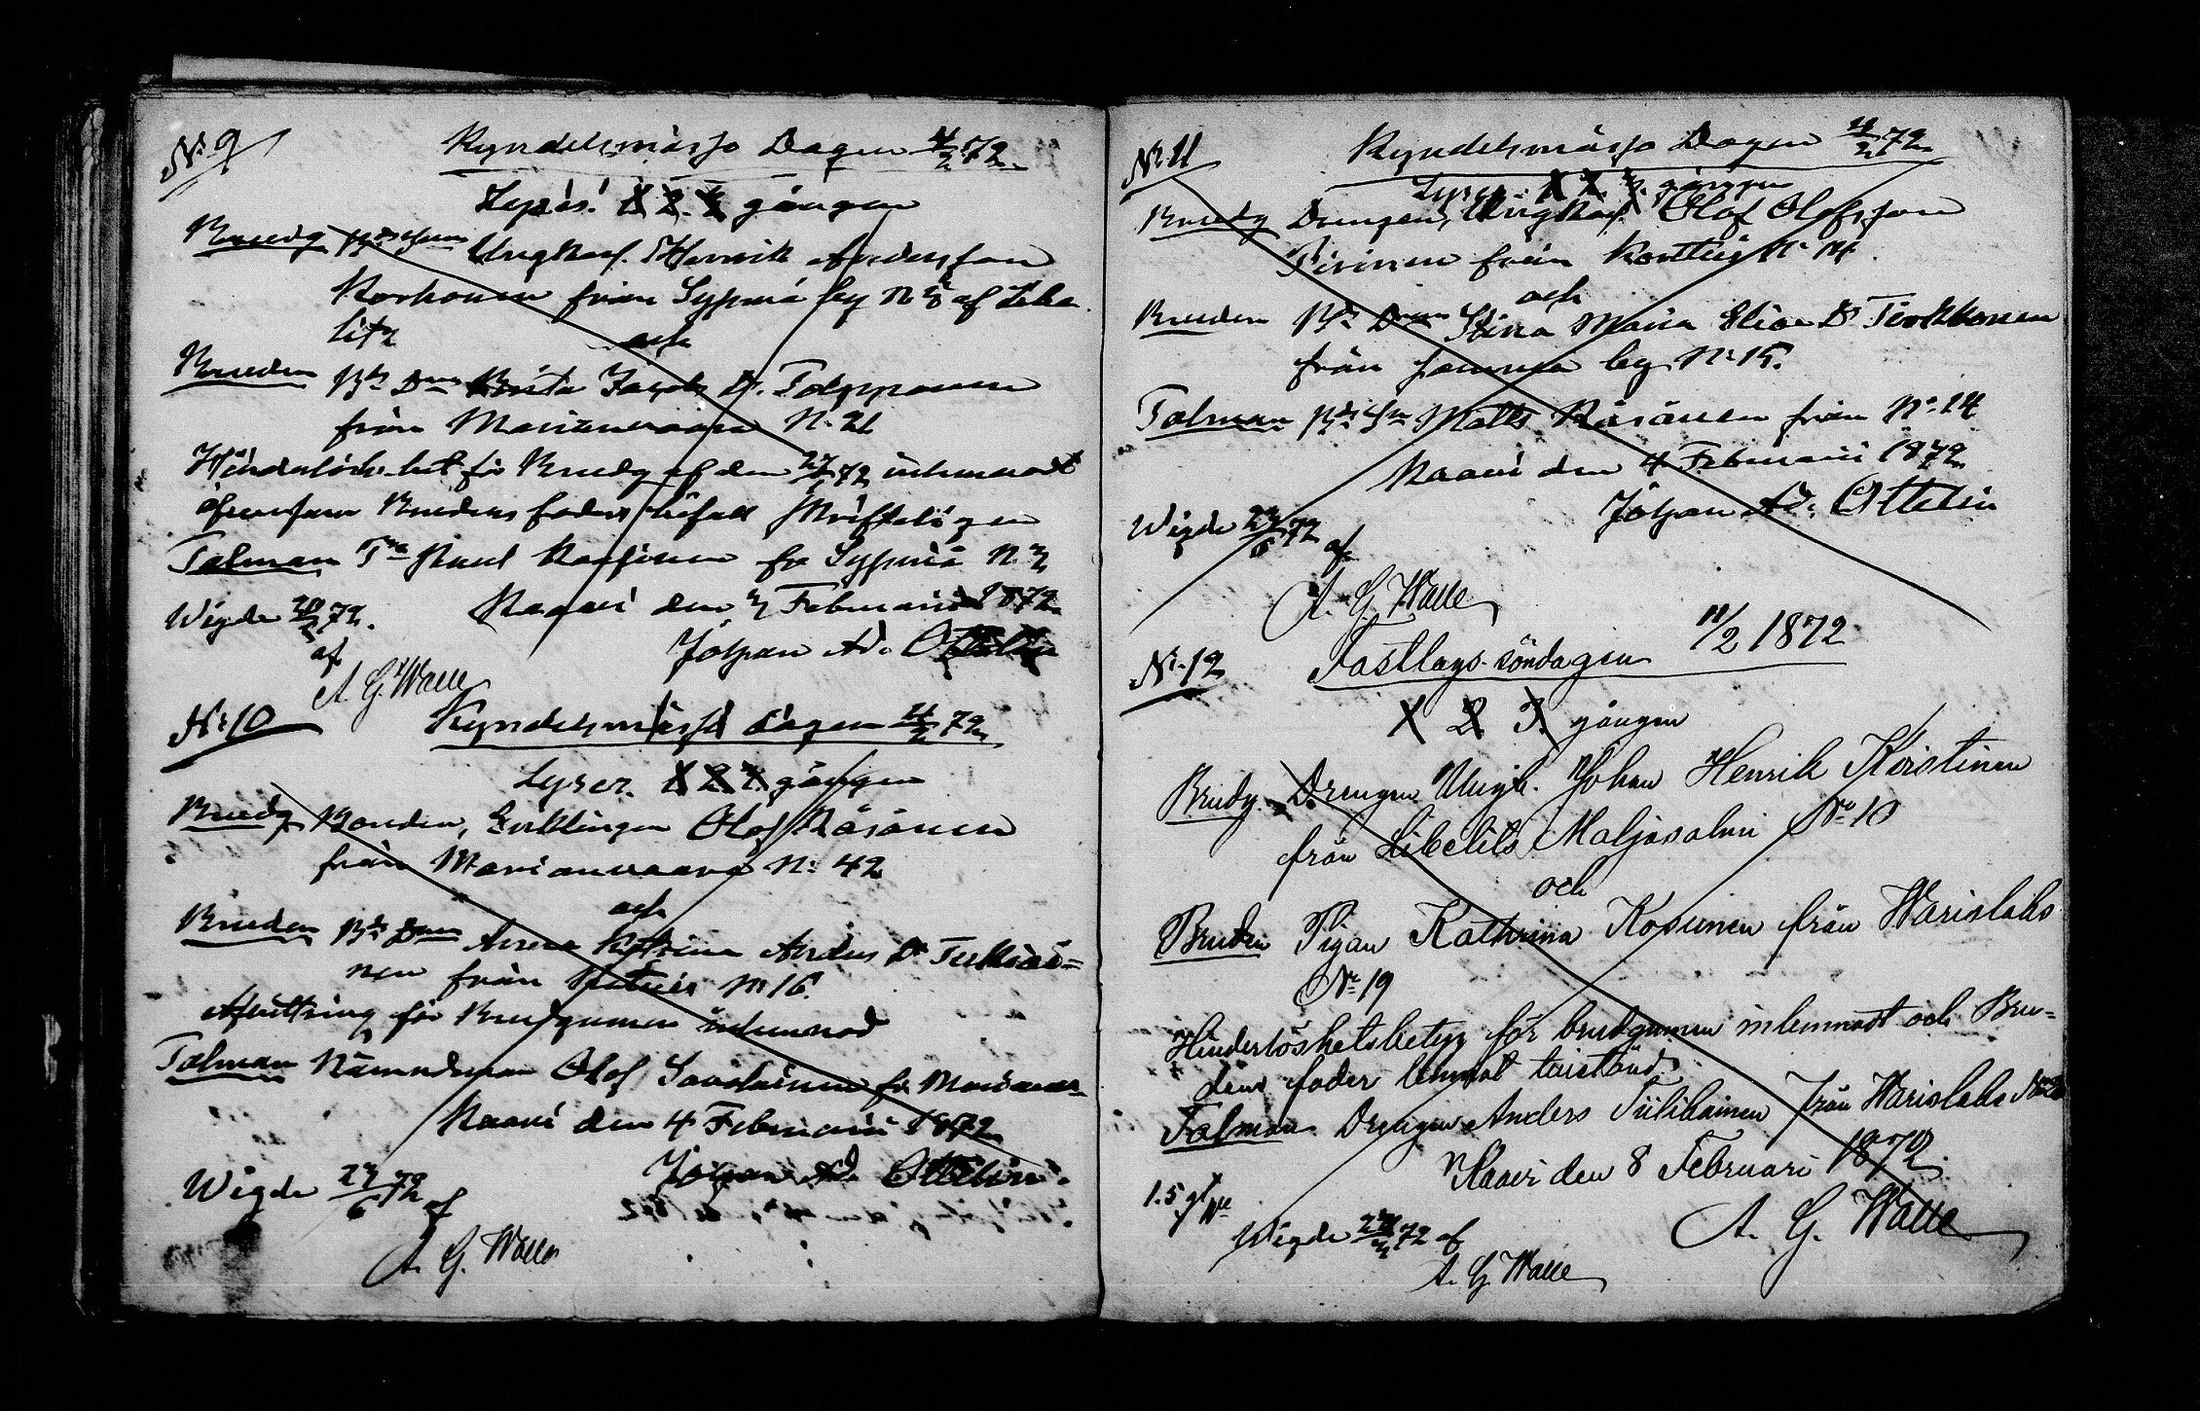 No 9
Kyndelsmässo Dagen 4/2 72.
Lyses! 1 2. 3 gången
Brudg Bdesonen Ungkarl. Henrik Andersson
Korhonen från Sysmä by N 8 af Libe
litz
och
Bruden Bde Dn Brita Jacobs Dr. Tolppanen
från Marianvaara N. 21
Hinderlösh. bet för Brudg af den 27/1 72 inlemnadt
äfvensom Brudens faders bifall skrifteligen
Talman Paul fr Sysmä N 3
Kaavi den 3 Februari 1872
Johan Ad. Ottelin
Wigde 72.
af
A. G. Walle
No 10
Kyndelsmässo dagen 4/2 72.
Lyses. 1 2 3 gången
Brudg Bonden, Enklingen Olof Räsänen
från Marianvaara N: 42
och
Bruden Bde Dn Anna Katrina Anders Dr
nen från No 16.
Afvittring för Brudgumen inlemnad
Talman Nämndeman Olof Savolainen fr Marianv
Kaavi den 4 Februari 1872
Johan Ad. Ottelin.
Wigde 23/6 72 af
A. G. Walle
No 11
Kyndelsmässo Dagen 4/2 72
Lyses. 1 2. 3. gången
Brudg Drengen, Ungkarl. Olof Olofsson
Pirinen från Kortteis No 14
och
Bruden Bde Dn Stina Maria Elias Dr Tirkkonen
från samma by No 15.
Talman Bde Sn Matts Räsänen från No 14
Kaavi den 4 Februari 1872
Johan Ad. Ottelin
Wigde 23/6 72 af
A. G. Walle
No 12
Fastlags-söndagen 11/2 1872
1 2 3. gången
Brudg. Drengen Ungk. Johan Henrik Koistinen
från Libelits Maljasalmi No 10
och
Bruden Pigan Kathrina Kosunen från Warislaks
No 19
Hinderlöshetsbetyg för brudgumen inlemnadt och Bru=
dens fader lemnat tillstånd
Talman Drengen Anders Tiilikainen från Warislaks
Kaavi den 8 Februari 1872.
A. G. Walle
Wigde 72 af
A. G. Walle